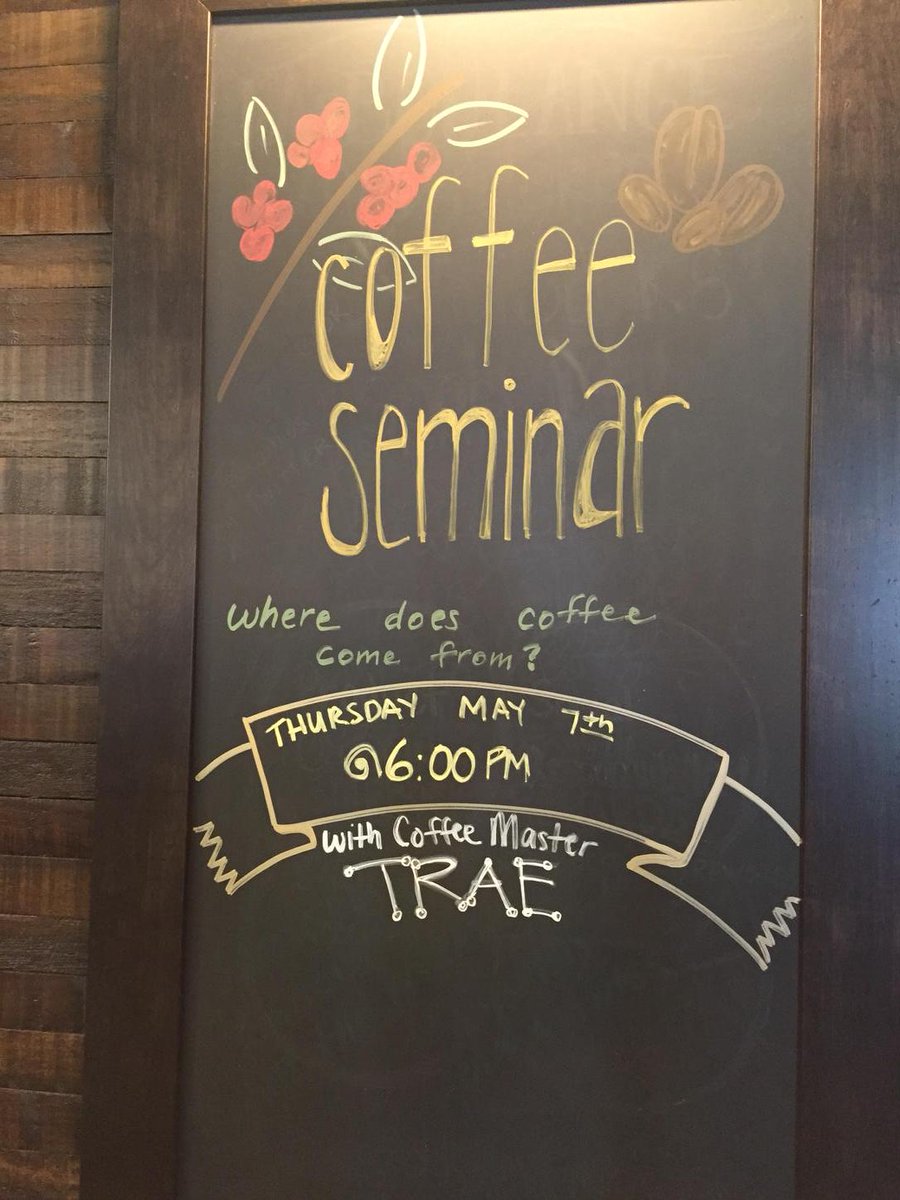 coffee
seminar
where does coffee
come from?
THURSDAY MAY 7th
@6:00 PM
with Coffee Master
TRAE